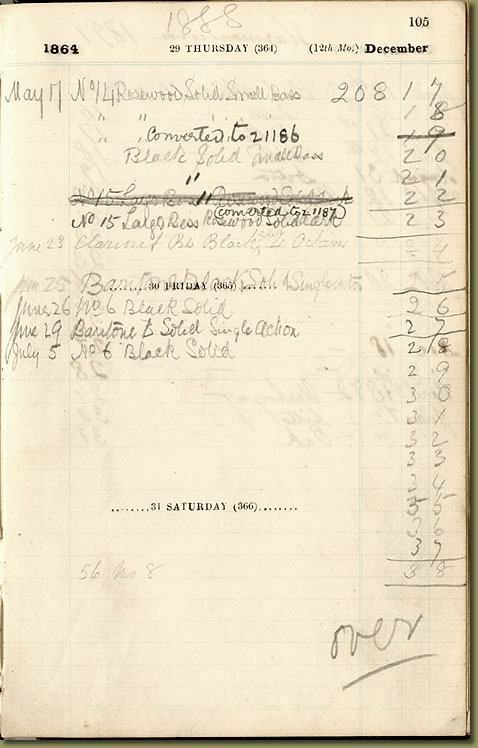 1888
105
1864 29 THURSDAY (364) (12th Mo.) December
May 17 No 14 Rosewood Solid Small Bass 208 1 7
" " " " 1 8
" " Converted to 21186 1 9
Black Solid Small Bass 2 0
" 2 1
No 15 Large Bass 2 2
(converted to 21187)
No 15 Large Bass Rosewood Solid 2 3
June 23 Clarionet Bb Black 4 Octaves 2 4
June 25 Baritone Black Solid Single action 2 5
30 FRIDAY (365)
June 26 No 6 Black Solid 2 6
June 29 Baritone E Solid Single Action 2 7
July 5 No 6 Black Solid 2 8
2 9
3 0
3 1
3 2
3 3
3 4
31 SATURDAY (366) 3 5
3 6
3 7
56 No 8 3 8
over